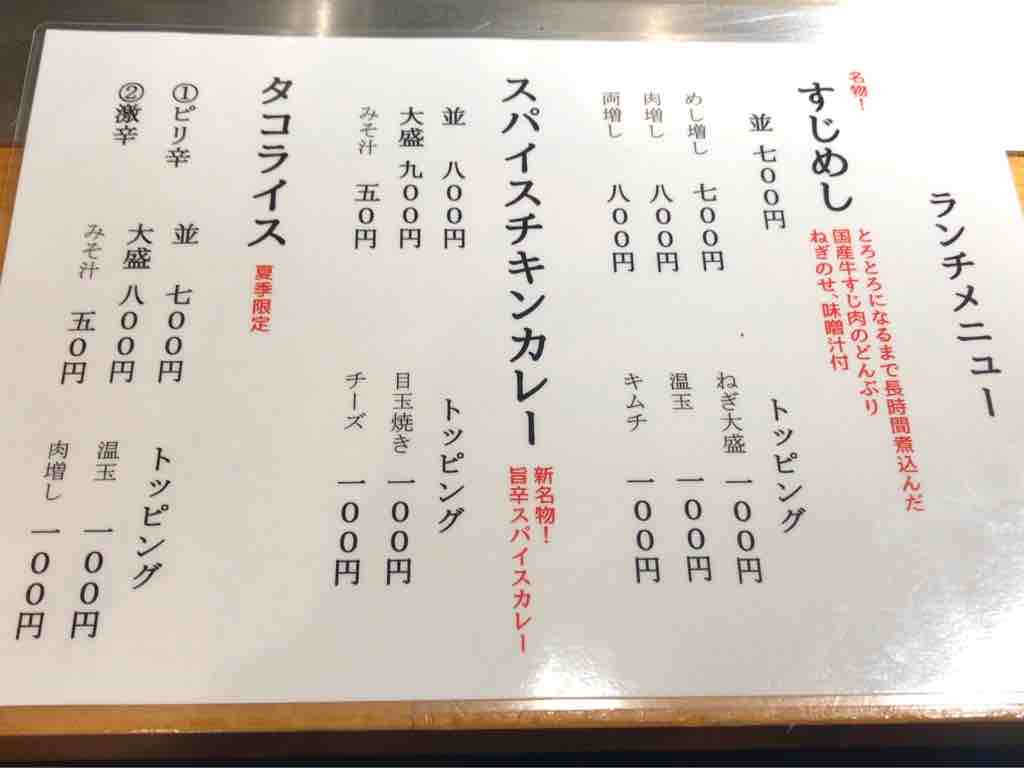 ランチメニュー
名物!
すじめし
とろとろになるまで長時間煮込んだ
国産牛すじ肉のどんぶり
ねぎのせ、味噌汁付
並 七00円
めし増し 七00円
肉増し 八00円
両増し 八00円
トッピング
ねぎ大盛 一00円
温玉 一00円
キムチ 一00円
スパイスチキンカレー
新名物!
旨辛スパイスカレー
並 八00円
大盛 九00円
みそ汁 五0円
トッピング
目玉焼き 一00円
チーズ 一00円
タコライス 夏季限定
①ピリ辛
②激辛
並 七00円
大盛 八00円
みそ汁 五0円
トッピング
温玉 一00円
肉増し 一00円